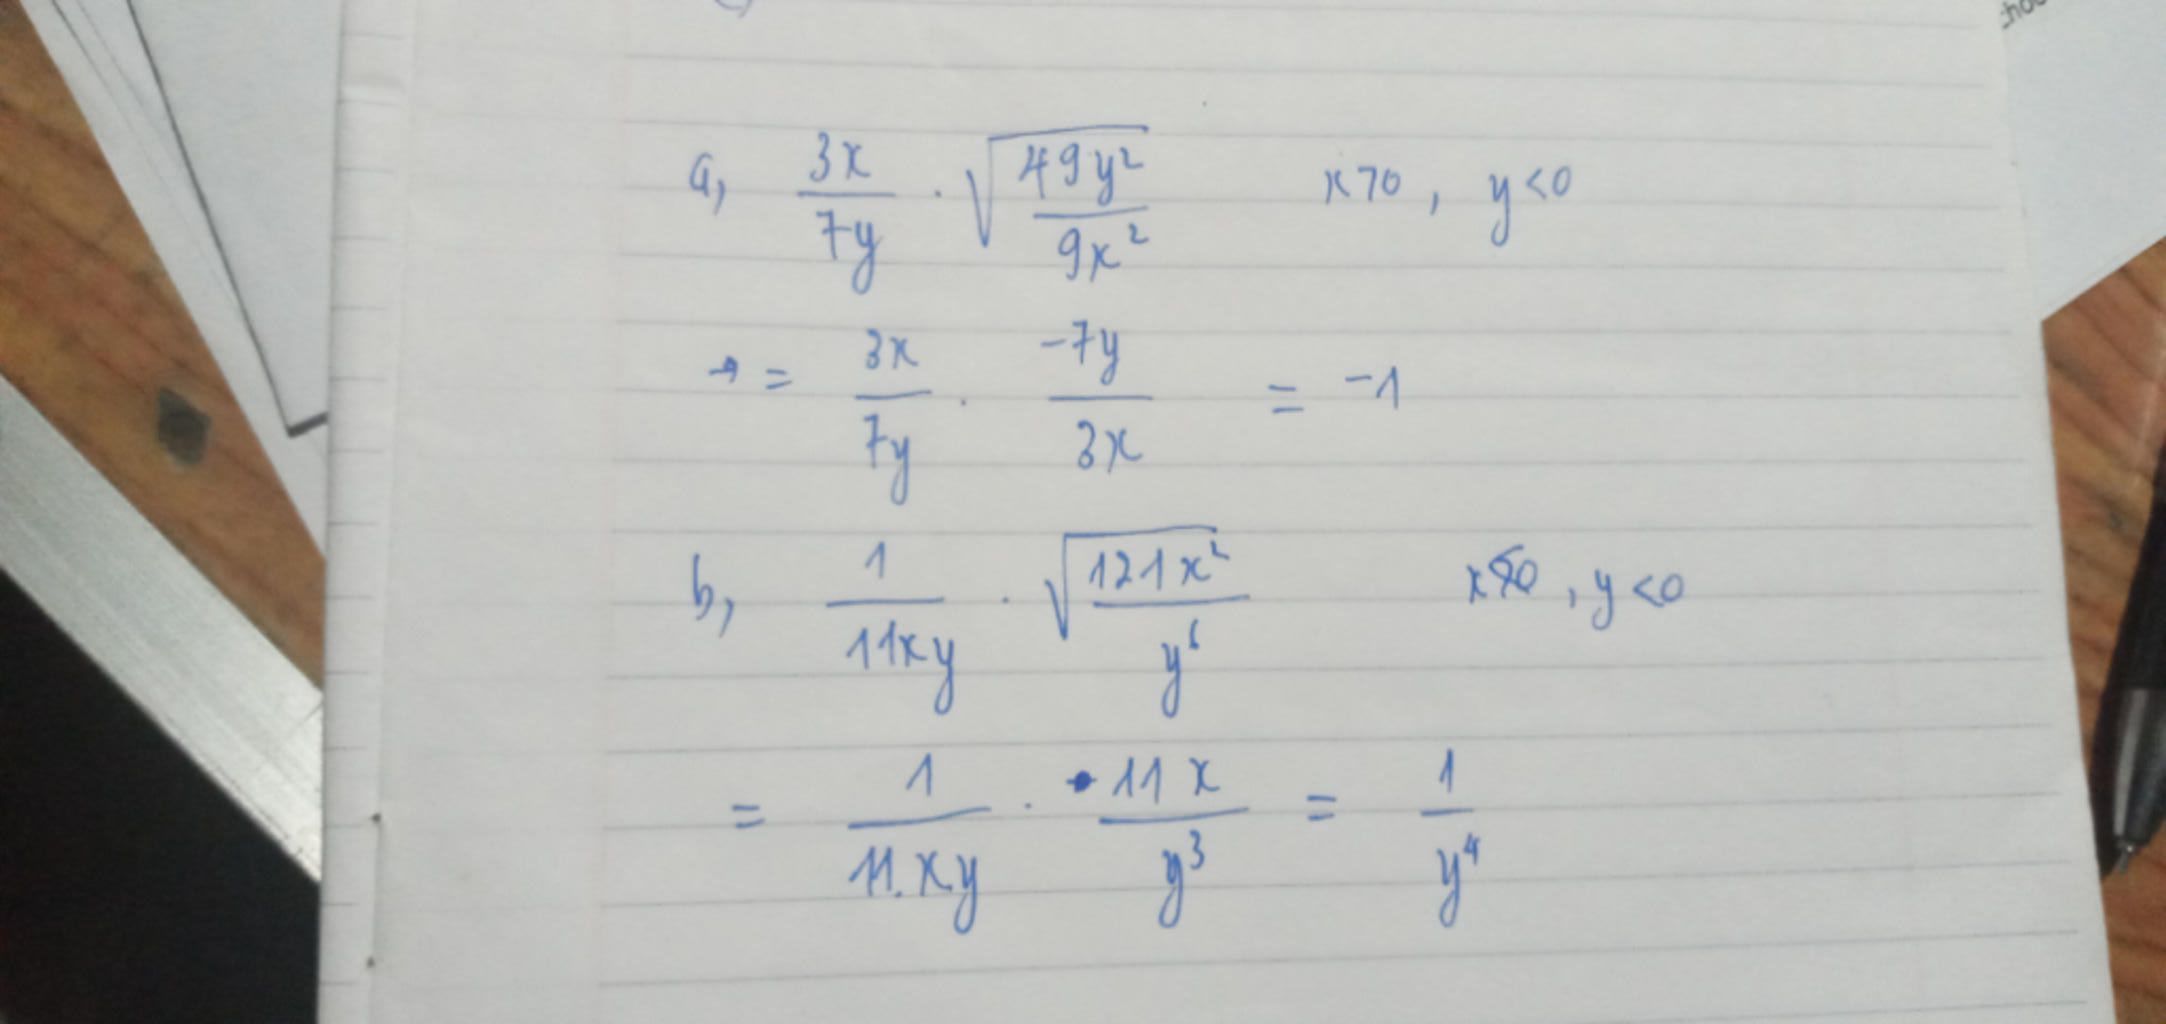 a, 3x/7y . √(49y²/9x²) x>0, y<0
→ = 3x/7y . -7y/3x = -1
b, 1/11xy . √(121x²/y⁶) , y<0
= 1/11.x.y . 11x/y³ = 1/y⁴